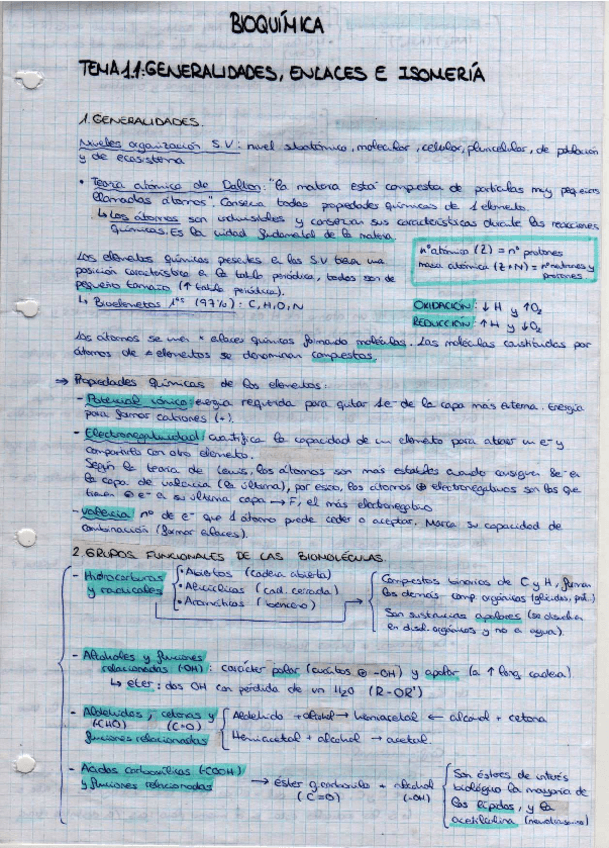 BIOQUÍMICA
TEMA 1.1: GENERALIDADES, ENLACES E ISOMERÍA
1. GENERALIDADES.
Niveles organización S.V: nivel subatómico, molecular, celular, pluricelular, de población
y de ecosistema
• Teoría atómica de Dalton: "la materia está compuesta de partículas muy pequeñas
llamadas átomos". Conserva todas propiedades químicas de 1 elemento.
↳ Los átomos son indivisibles y conservan sus características durante las reacciones
químicas. Es la unidad fundamental de la materia.
Los elementos químicos presentes en los S.V tienen una
posición característica en la tabla periódica, todos son de
pequeño tamaño (↑ tabla periódica).
↳ Bioelementos 1ᵒˢ (97%): C, H, O, N
nº atómico (Z) = nº protones
masa atómica (Z+N) = nº neutrones y
protones
OXIDACIÓN: ↓ H y ↑O₂
REDUCCIÓN: ↑H y ↓O₂
Los átomos se unen x enlaces químicos formando moléculas. Las moléculas constituidas por
átomos de ≠ elementos se denominan compuestos.
→ Propiedades químicas de los elementos:
- Potencial iónico: energía requerida para quitar 1e⁻ de la capa más externa. Energía
para formar cationes (+).
- Electronegatividad: cuantifica la capacidad de un elemento para atraer un e⁻ y
compartirlo con otro elemento.
Según la teoría de Lewis, los átomos son más estables cuando consiguen 8e⁻ en
la capa de valencia (la última), por esto, los átomos ⊕ electronegativos son los que
tienen ⊕ e⁻ a su última capa → F, el más electronegativo
- Valencia: nº de e⁻ que 1 átomo puede ceder o aceptar. Marca su capacidad de
combinación (formar enlaces).
2. GRUPOS FUNCIONALES DE LAS BIOMOLÉCULAS.
- Hidrocarburos
y radicales
• Abiertos (cadena abierta)
• Alicíclicos (cad. cerrada)
• Aromáticos (benceno)
Compuestos binarios de C y H, forman
los demás comp. orgánicos (glúcidos, prot..)
Son sustancias apolares (se disuelven
en disol. orgánicos y no a agua).
- Alcoholes y funciones
relacionadas (-OH): carácter polar (cuantos ⊕ -OH) y apolar (a ↑ long. cadena).
↳ eter: dos OH con pérdida de un H₂O (R-OR')
- Aldehidos, cetonas y
(-CHO) (C=O)
funciones relacionadas
Aldehido + alcohol → hemiacetal ← alcohol + cetona
Hemiacetal + alcohol → acetal.
- Ácidos carboxílicos (-COOH)
y funciones relacionadas
→ éster g. carbonilo + alcohol
(-C=O) (-OH)
Son ésteres de interés
biológico la mayoría de
los lípidos, y la
acetilcolina